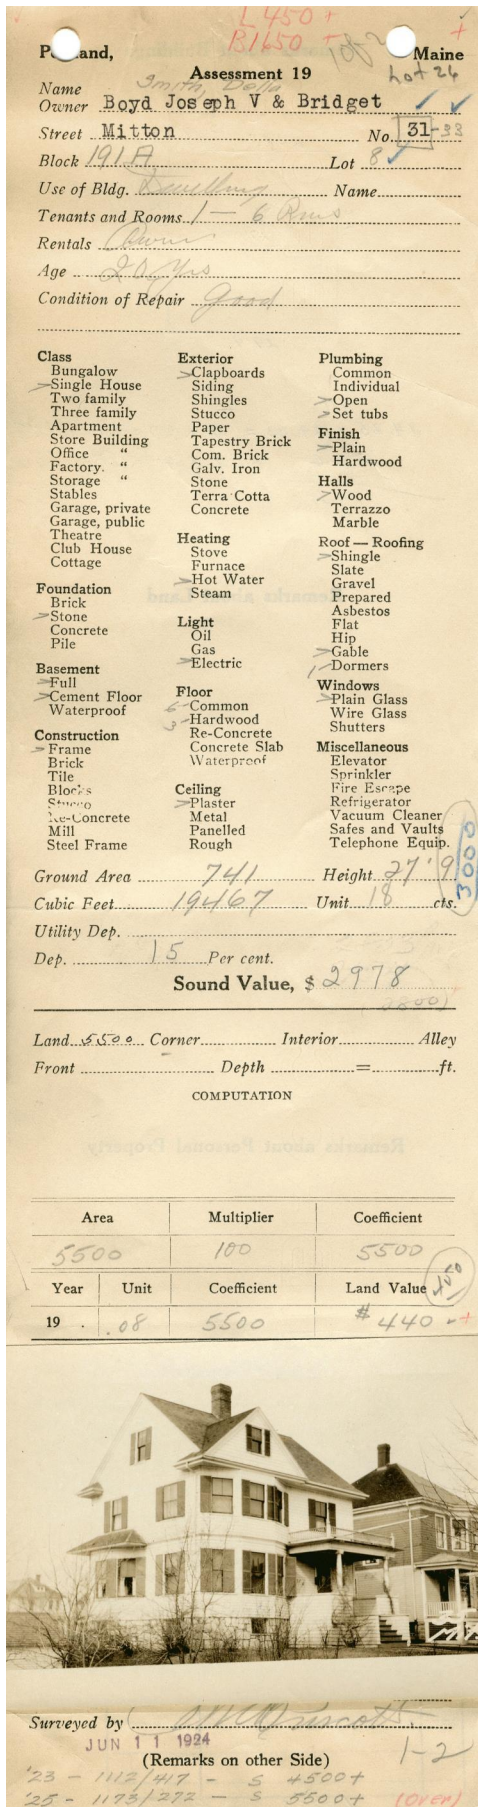 L 450 +
B1650 +
1 of 2
Portland, Maine
Assessment 19
Lot 26
Smith, Della
Name
Owner Boyd Joseph V & Bridget
Street Mitton No. 31-33
Block 191A Lot 8
Use of Bldg. Dwelling Name
Tenants and Rooms 1 — 6 Rms
Rentals Owner
Age 20 Yrs
Condition of Repair Good
Class
Bungalow
Single House
Two family
Three family
Apartment
Store Building
Office "
Factory. "
Storage "
Stables
Garage, private
Garage, public
Theatre
Club House
Cottage
Foundation
Brick
Stone
Concrete
Pile
Basement
Full
Cement Floor
Waterproof
Construction
Frame
Brick
Tile
Blocks
Stucco
Re-Concrete
Mill
Steel Frame
Exterior
Clapboards
Siding
Shingles
Stucco
Paper
Tapestry Brick
Com. Brick
Galv. Iron
Stone
Terra Cotta
Concrete
Heating
Stove
Furnace
Hot Water
Steam
Light
Oil
Gas
Electric
Floor
6 Common
3 Hardwood
Re-Concrete
Concrete Slab
Waterproof
Ceiling
Plaster
Metal
Panelled
Rough
Plumbing
Common
Individual
Open
Set tubs
Finish
Plain
Hardwood
Halls
Wood
Terrazzo
Marble
Roof — Roofing
Shingle
Slate
Gravel
Prepared
Asbestos
Flat
Hip
Gable
1 Dormers
Windows
Plain Glass
Wire Glass
Shutters
Miscellaneous
Elevator
Sprinkler
Fire Escape
Refrigerator
Vacuum Cleaner
Safes and Vaults
Telephone Equip.
3000
Ground Area 741 Height 27'9
Cubic Feet 19467 Unit 18 cts.
Utility Dep.
Dep. 15 Per cent.
Sound Value, $ 2978
Land 5500 Corner Interior Alley
Front Depth = ft.
COMPUTATION
Remarks about Personal Property
Area Multiplier Coefficient
5500 100 5500
Year Unit Coefficient Land Value
450
19 .08 5500 $ 440
Surveyed by
JUN 11 1924
(Remarks on other Side)
1-2
'23 - 1112/417 - S 4500+
'25 - 1173/272 - S 5500+ (over)